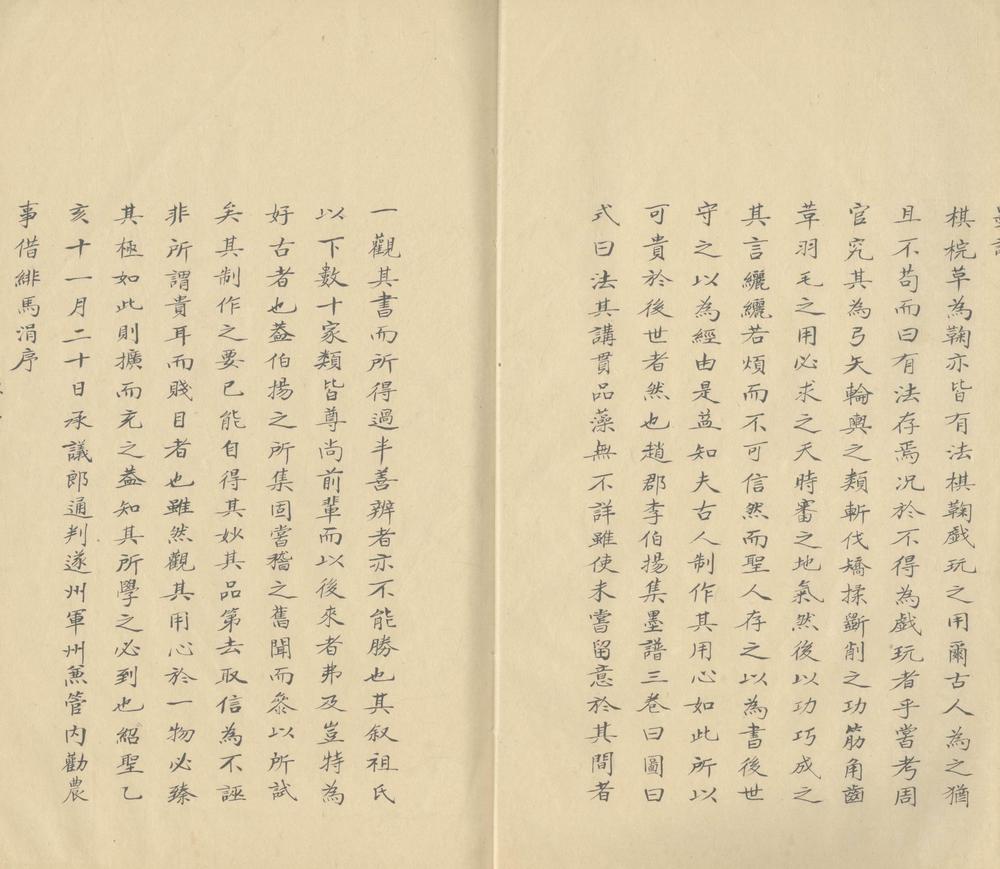 棋梡草為鞠亦皆有法棋鞠戲玩之用爾古人為之猶
且不苟而曰有法存焉况於不得為戲玩者乎嘗考周
官究其為弓矢輪輿之類斬伐矯揉斷削之功筋角齒
草羽毛之用必求之天時審之地氣然後以功巧成之
其言纚纚若煩而不可信然而聖人存之以為書後世
守之以為經由是益知夫古人制作其用心如此所以
可貴於後世者然也趙郡李伯揚集墨譜三卷曰圖曰
式曰法其講貫品藻無不詳雖使未嘗留意於其間者
一觀其書而所得過半善辨者亦不能勝也其叙祖氏
以下數十家類皆尊尚前輩而以後來者弗及豈特為
好古者也葢伯揚之所集固嘗稽之舊聞而叅以所試
矣其制作之要已能自得其妙其品第去取信為不誣
非所謂貴耳而賤目者也雖然觀其用心於一物必臻
其極如此則擴而充之葢知其所學之必到也紹聖乙
亥十一月二十日承議郎通判遂州軍州兼管内勸農
事借緋馬涓序